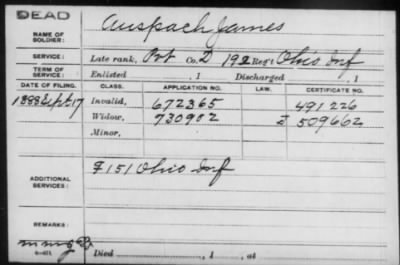 DEAD
NAME OF SOLDIER: Auspach James
SERVICE: Late rank, Pvt Co. D 192 Reg't Ohio Inf
TERM OF SERVICE: Enlisted , 1 Discharged , 1
DATE OF FILING. CLASS. APPLICATION NO. LAW. CERTIFICATE NO.
1888 Sept 17 Invalid, 672365 491226
Widow, 730902 509662
Minor,
ADDITIONAL SERVICES: F 151 Ohio Inf
REMARKS:
Died , 1 , at